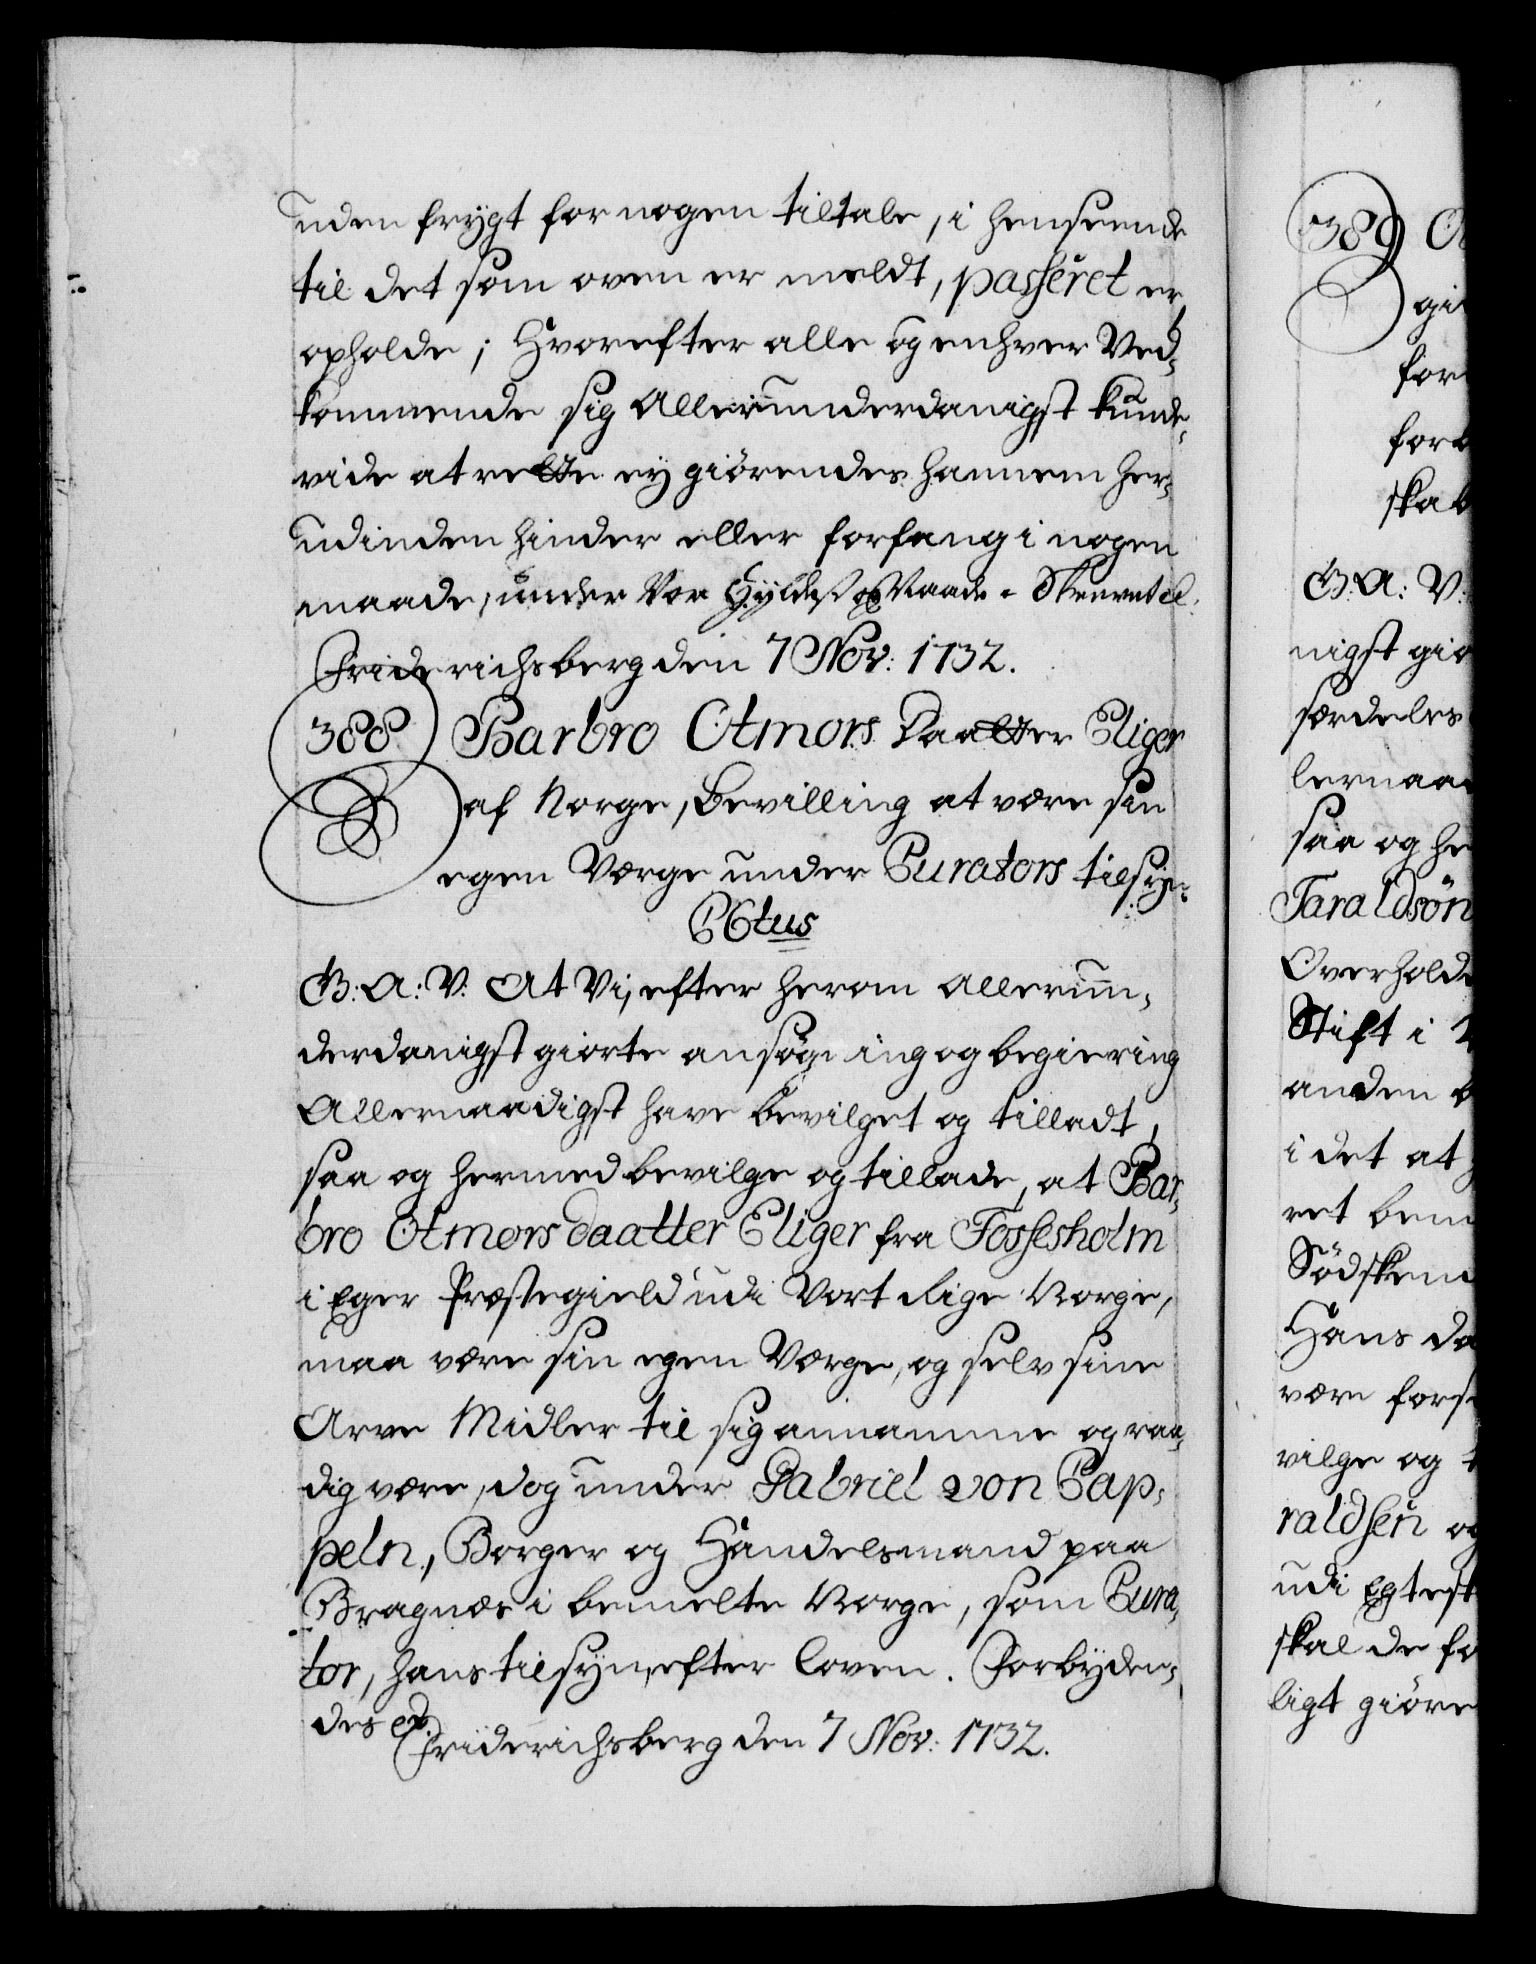 uden frygt for nogen tiltale, i henseende
til det som oven er meldt, passeret er,
opholde; Hvorefter alle og enhver Ved-
kommende sig Allerunderdanigst kunde
vide at rette ey giörendes hannem her-
udinden hinder eller forfang i nogen
maade, under Vor Hyldest og Naade. Skrevet &c:
Friderichsberg den 7 Nov: 1732.
388 Barbro Otmors Daatter Eliger
af Norge, bevilling at være sin
egen Værge under Curators tilsyn.
CStus
G: A: V: At Vi, efter herom Allerun-
derdanigst giorte ansøgning og begiering
Allernaadigst have bevilget og tilladt,
saa og hermed bevilge og tillade, at Bar-
bro Otmors daatter Eliger fra Fossesholm
i Eger Præstegield udi Vort Rige Norge,
maa være sin egen Værge, og selv sine
Arve Midler til sig annamme og raa-
dig være, dog under Gabriel von Cap-
peln, Borger og Handelsmand paa
Bragnæs i bemelte Norge, som Cura-
tor, hans tilsyn, efter Loven. Forbyden-
des &c.
Friderichsberg den 7 Nov: 1732.
389
gi
for
forb
skab
G: A: V:
nigst giv
særdeles
lernaad
saa og he
Taraldsön
Overholde
Stift i
anden
i det at
ret bem
Södsken
Hans da
være fors
vilge og t
raldsen og
udi Egtesk
skal de fo
ligt giöre